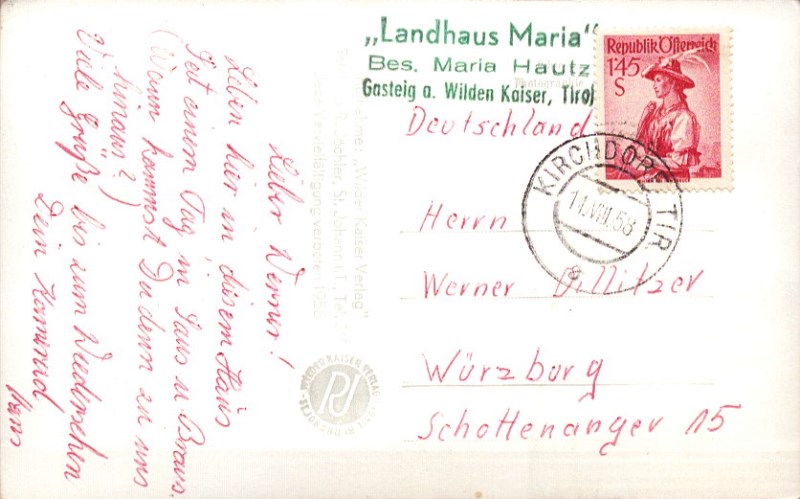 „Landhaus Maria“
Bes. Maria Hautz
Gasteig a. Wilden Kaiser, Tirol
Republik Österreich
1'45
S
KIRCHDORF TIR.
11.VIII.58
Deutschland
Herrn
Werner Dillitzer
Würzburg
Schottenanger 15
Lieber Werner!
Leben hier in diesem Haus
seit einem Tag in Saus u Braus.
(Wann kommst Du denn zu uns
hinaus?)
Viele Grüße bis zum Wiedersehen
Dein Kamerad
Hans
Photographie
"Wilder Kaiser Verlag"
St. Johann i.T., Tel.
verboten 1955
WILDER KAISER VERLAG